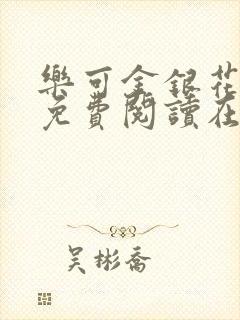 樂可金銀花
免費閱讀在
吴彬喬